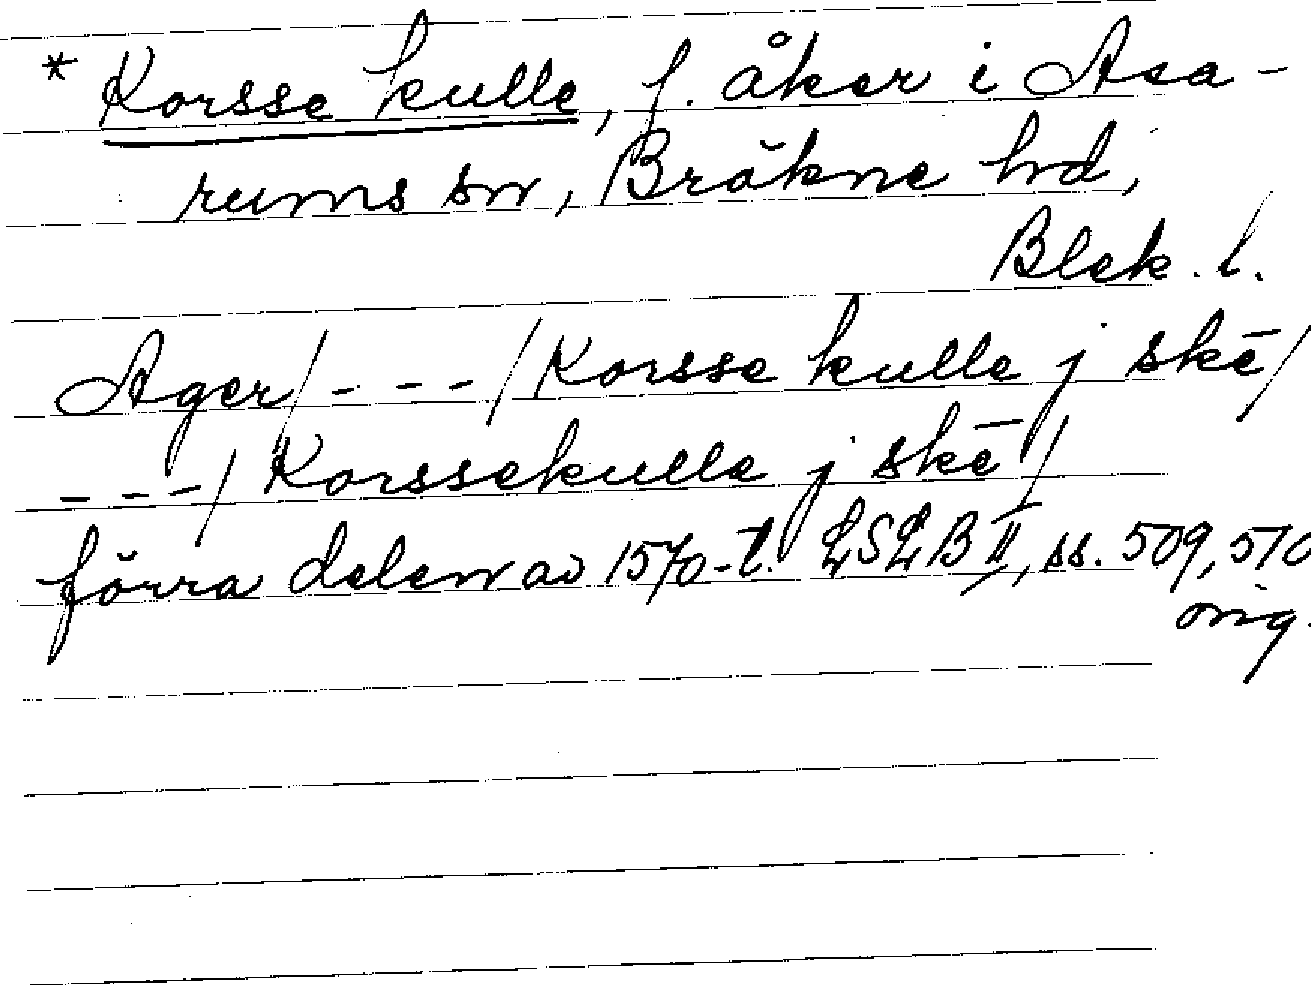 * Korsse kulle, f. åker i Asa-
rums sn, Bräkne hd,
Blek. l.
Ager/- - -/Korsse kulle j skē/
- - -/Korssekulle j skē/
förra delen av 1570-t. LSLB II, ss. 509, 510
orig.